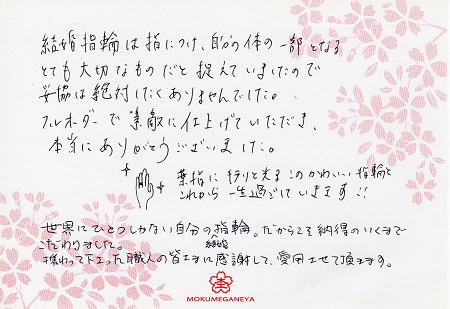 結婚指輪は指につけ、自分の体の一部となる
とても大切なものだと捉えていましたので
妥協は絶対したくありませんでした。
フルオーダーで素敵に仕上げていただき、
本当にありがとうございました。
薬指にキラリと光るこのかわいい指輪と
これから一生過ごしていきます!!
世界にひとつしかない自分の結婚指輪。だからこそ納得のいくまで
こだわりました。
携わって下さった職人の皆さまに感謝して、愛用させて頂きます。
MOKUMEGANEYA